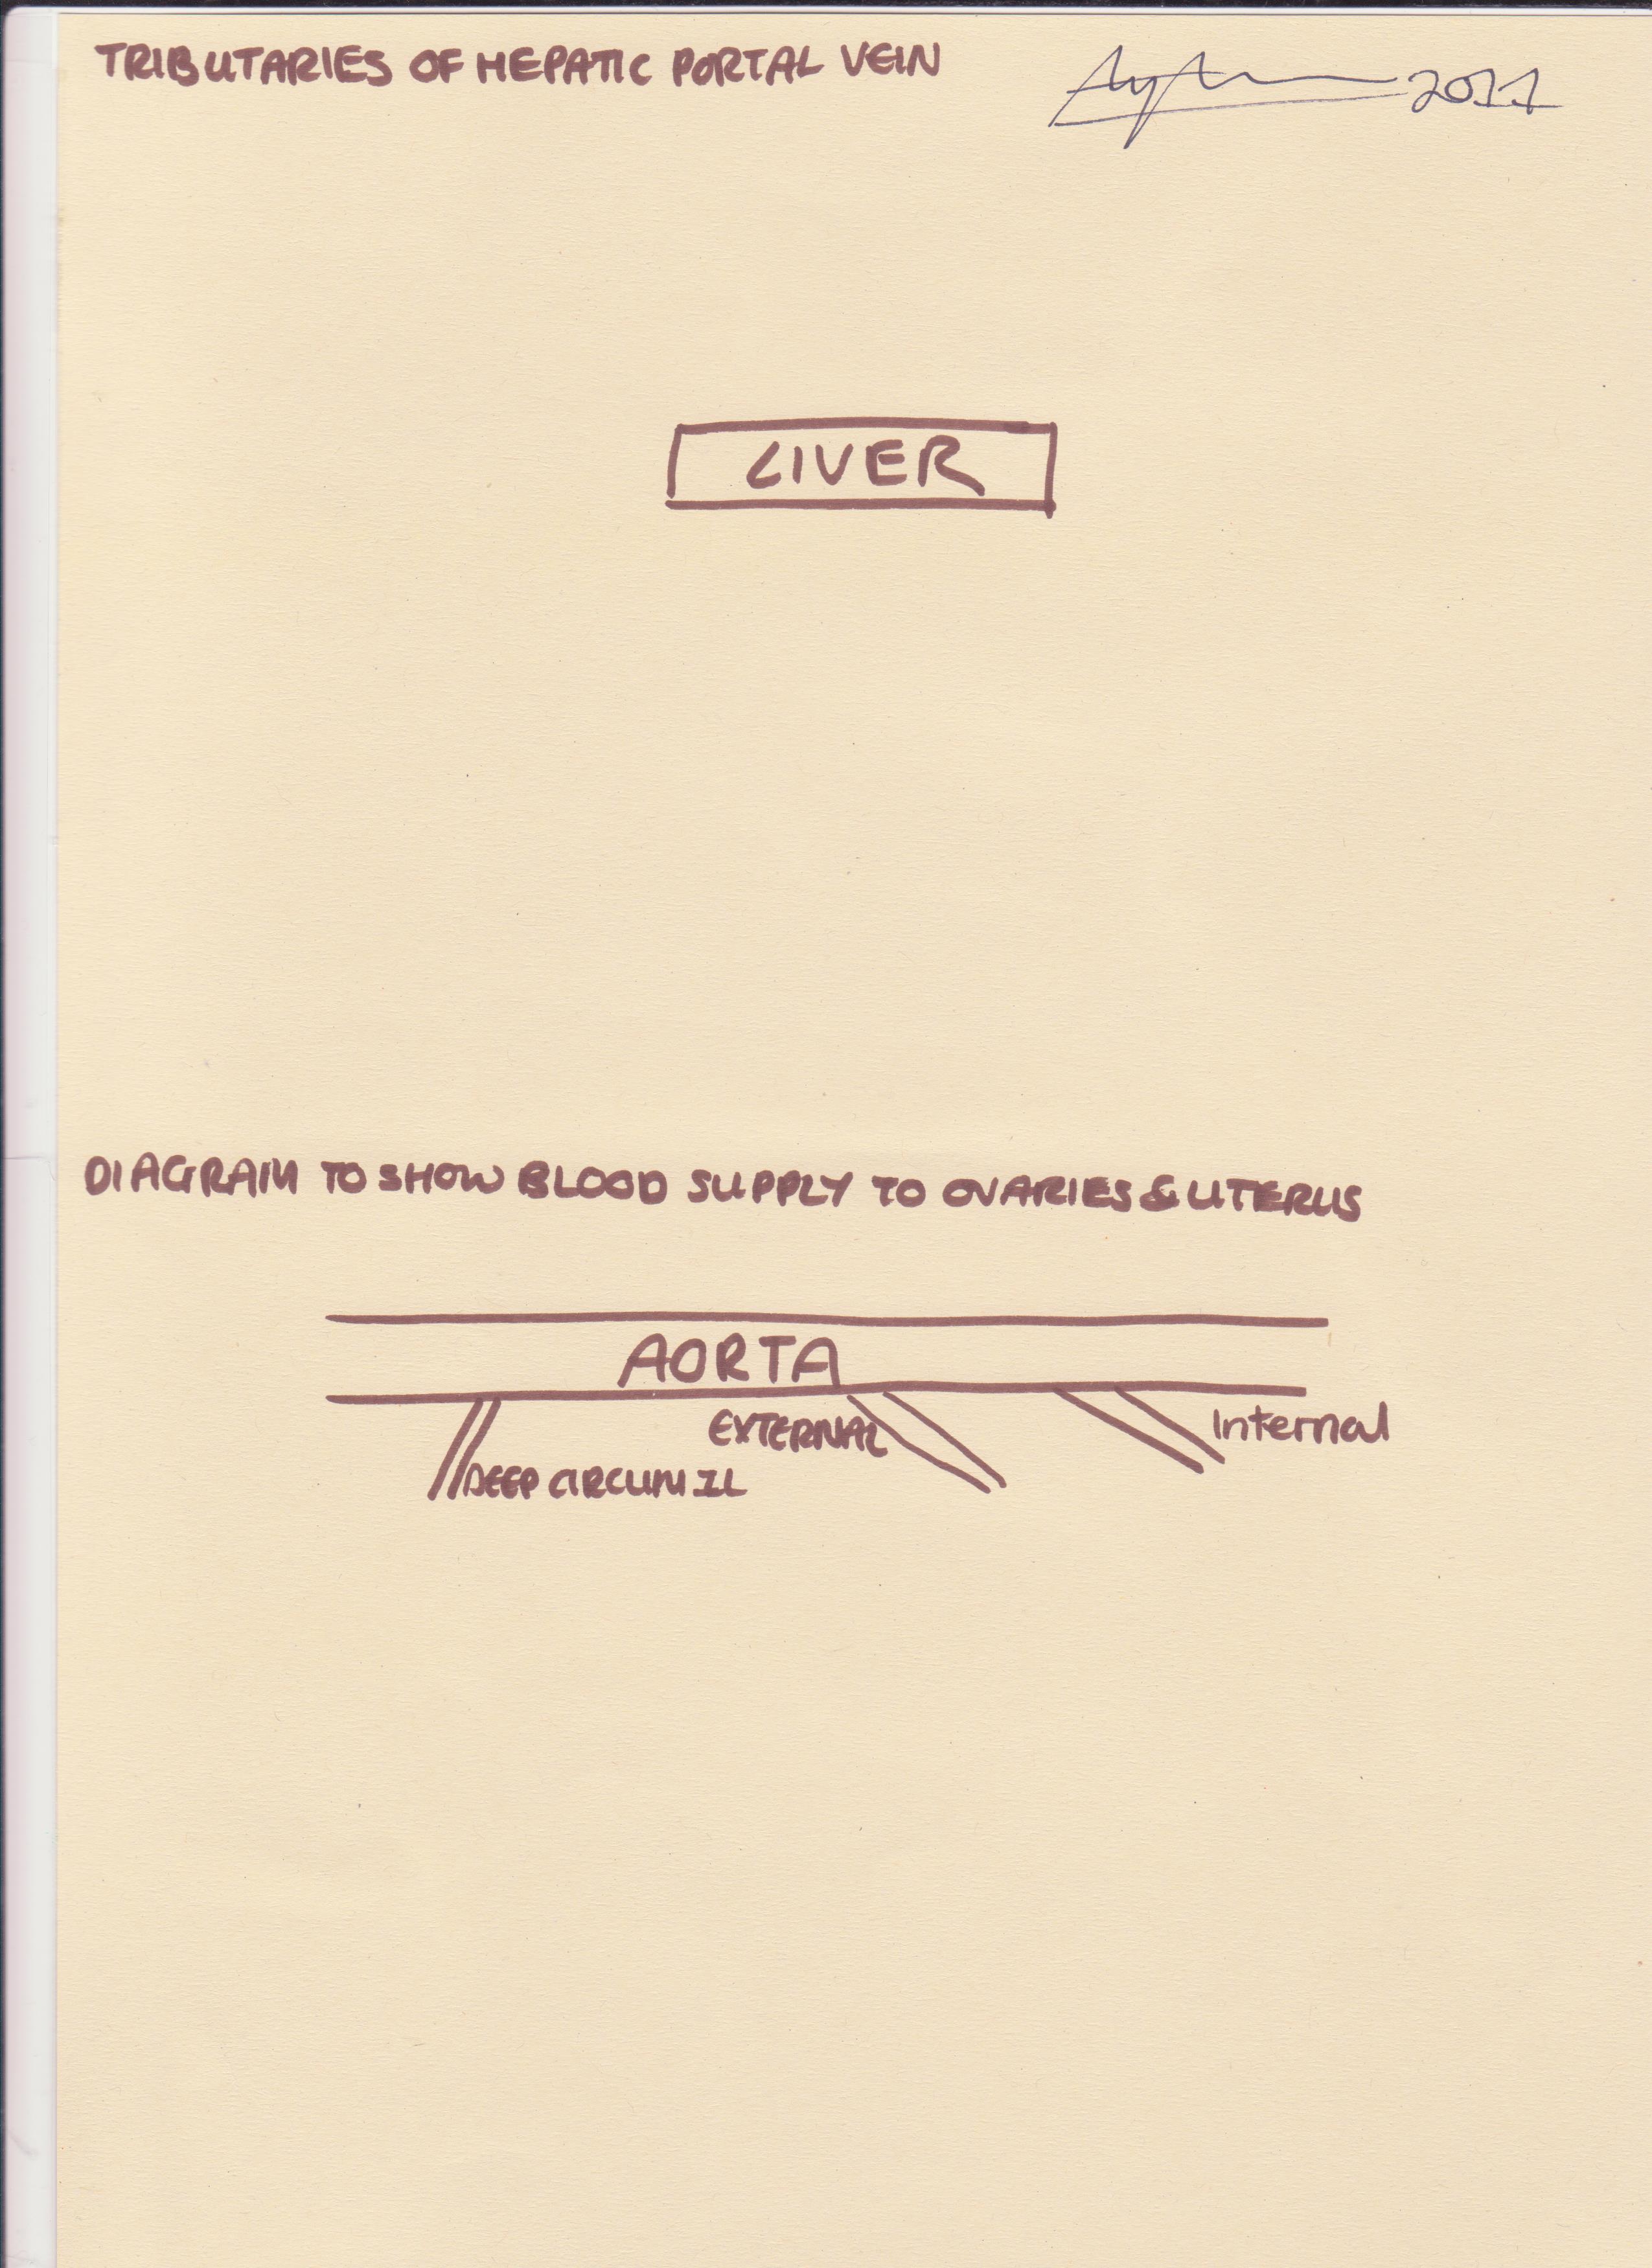 TRIBUTARIES OF HEPATIC PORTAL VEIN
2011
LIVER
DIAGRAM TO SHOW BLOOD SUPPLY TO OVARIES & UTERUS
AORTA
EXTERNAL
Internal
DEEP CIRCUM IL